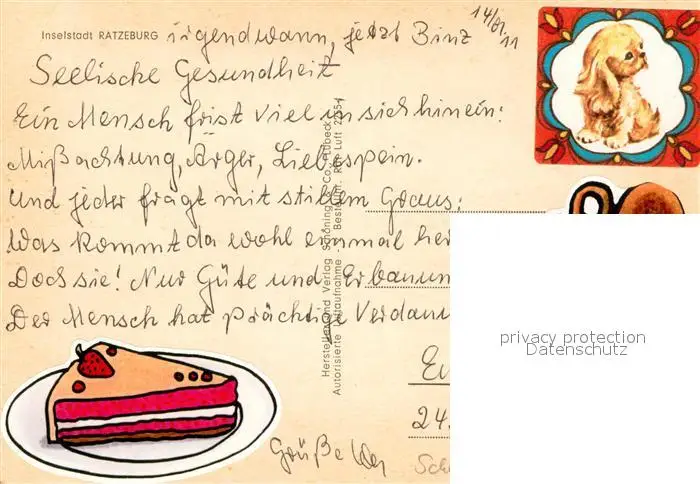 Inselstadt RATZEBURG irgendwann, jetzt Binz 14/81/11
Seelische Gesundheit
Ein Mensch frist viel in sich hinein:
Mißachtung, Ärger, Liebespein.
Und jeder fragt mit stillem Graus:
Was kommt da wohl einmal her
Doch sie! Nur Güte und Erbauun
Der Mensch hat prächtige Verdau
Hersteller und Verlag Schöning & Co., Lübeck
Autorisierte Luftaufnahme
privacy protection
Datenschutz
24.
Grüße
Sch